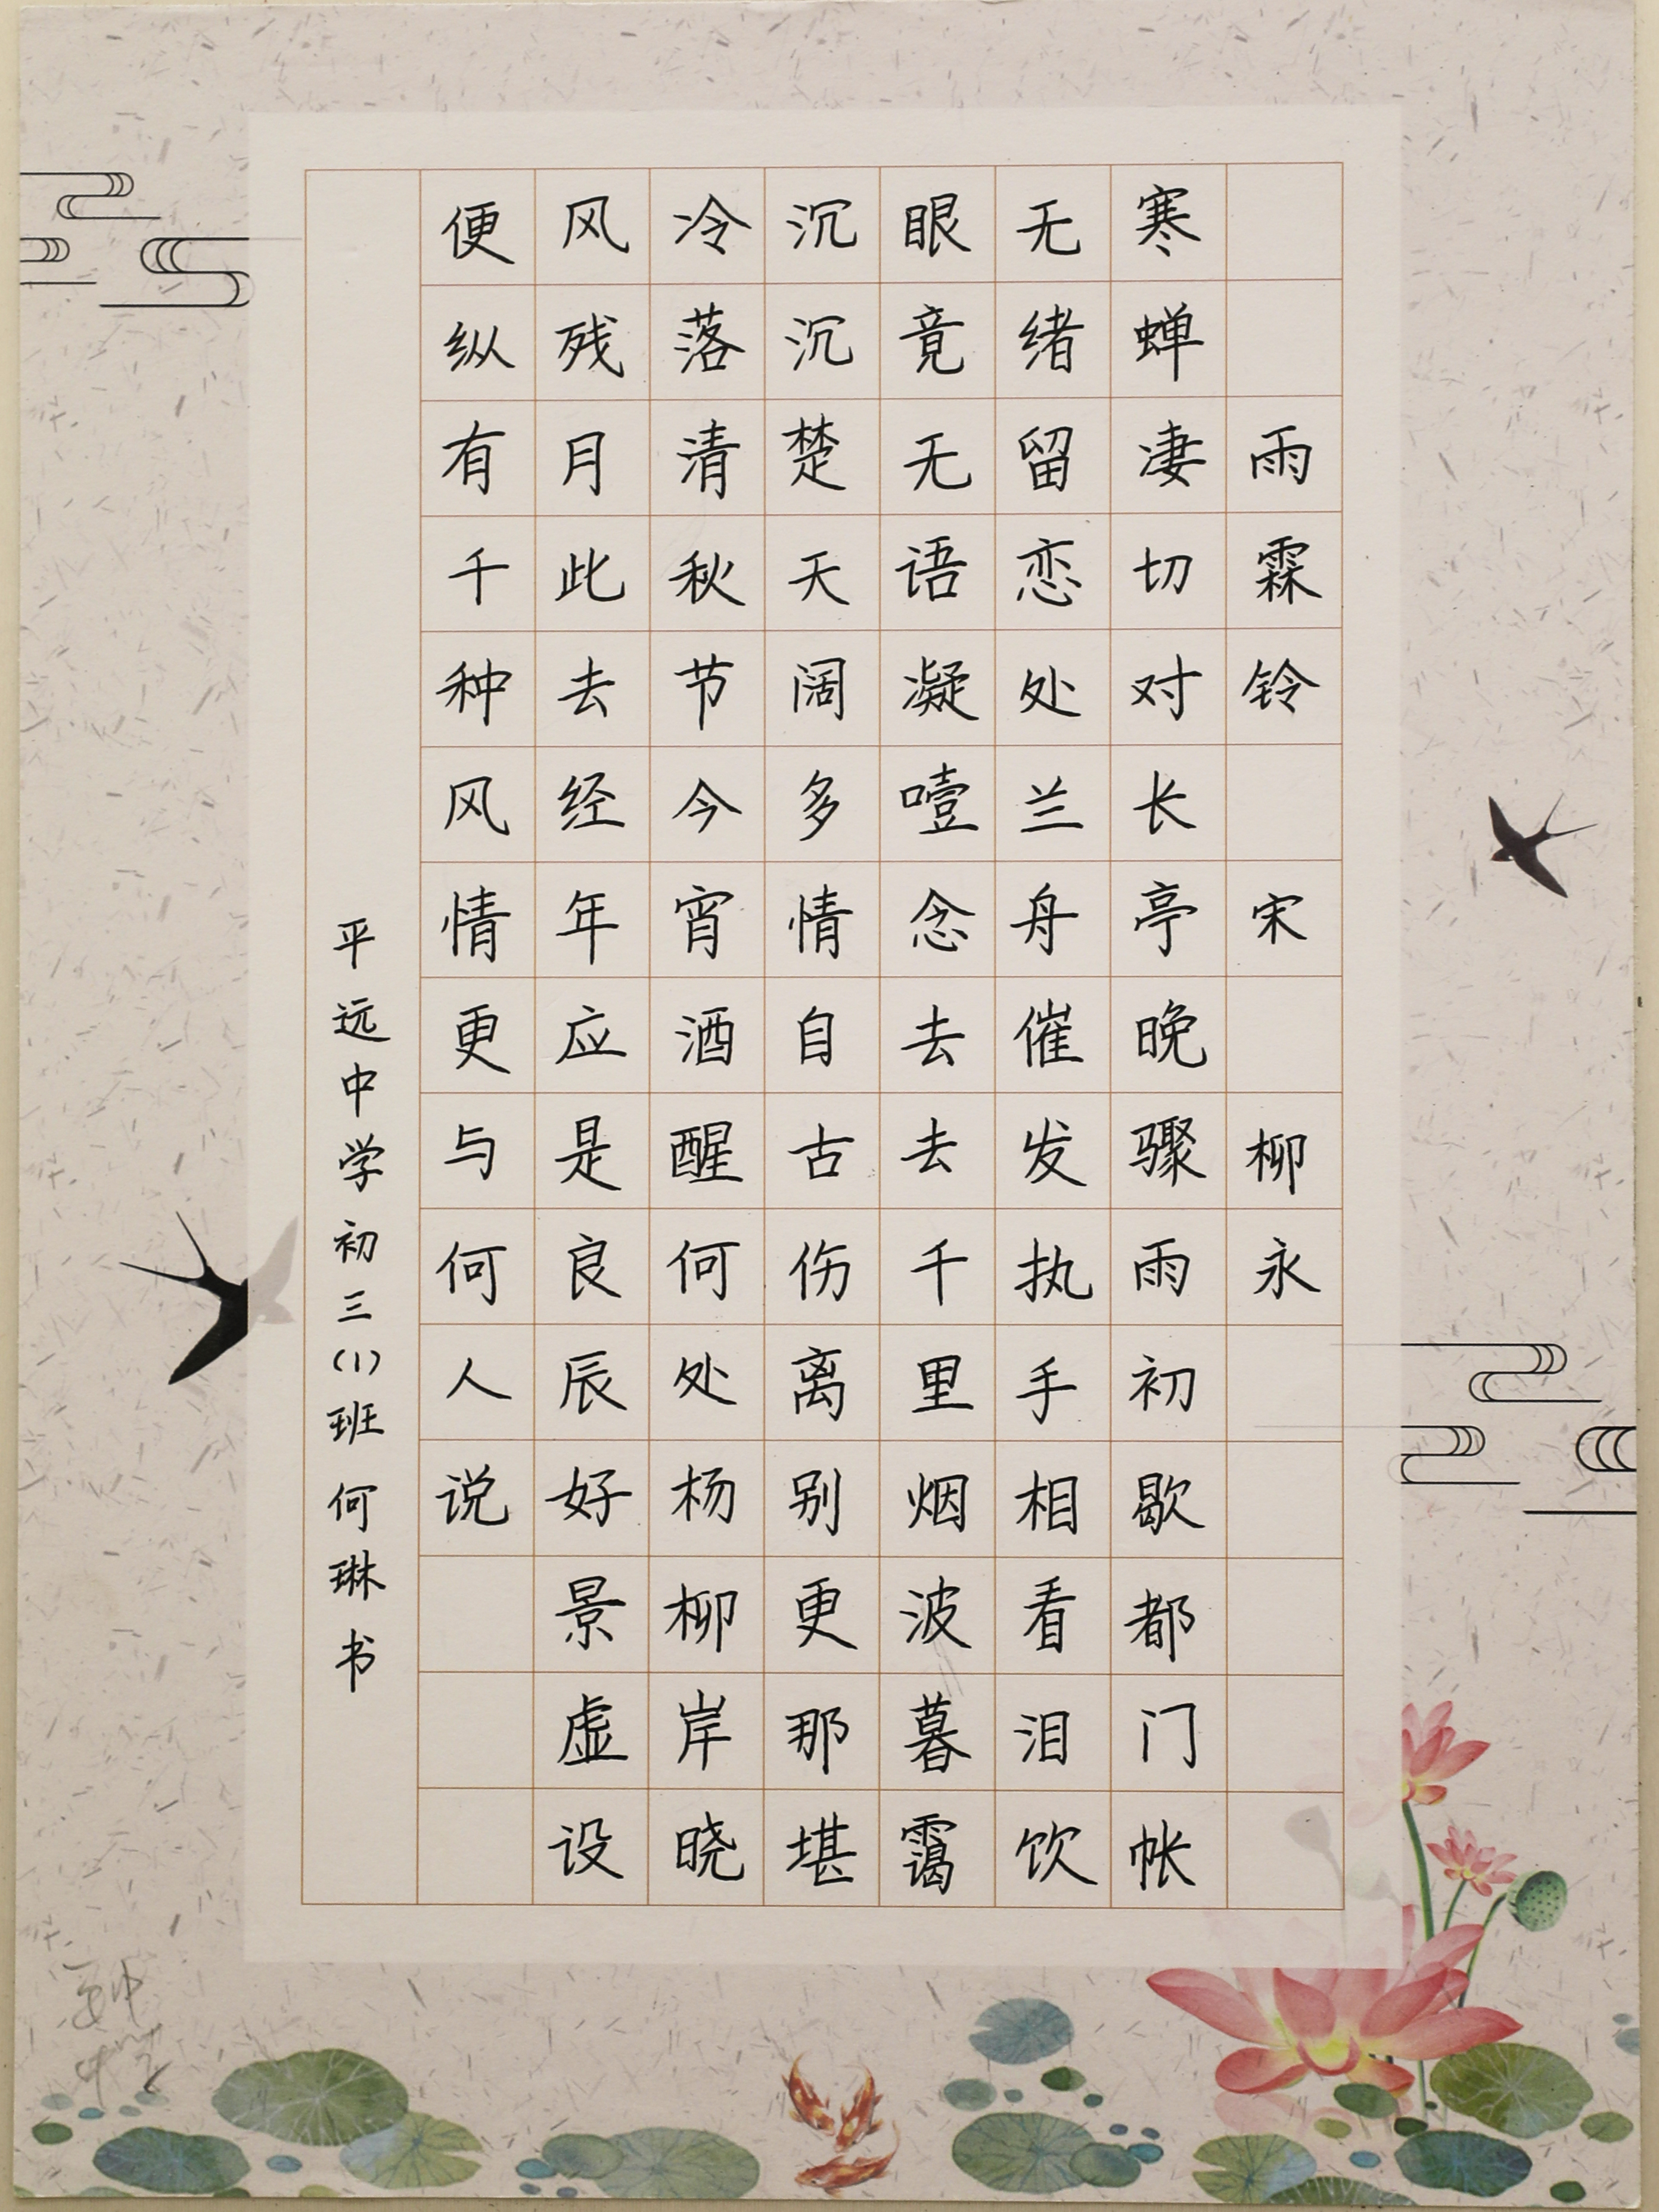 雨霖铃 宋 柳永
寒蝉凄切对长亭晚骤雨初歇都门帐
无绪留恋处兰舟催发执手相看泪饮
眼竟无语凝噎念去去千里烟波暮霭
沉沉楚天阔多情自古伤离别更那堪
冷落清秋节今宵酒醒何处杨柳岸晓
风残月此去经年应是良辰好景虚设
便纵有千种风情更与何人说
平远中学初三(1)班何琳书